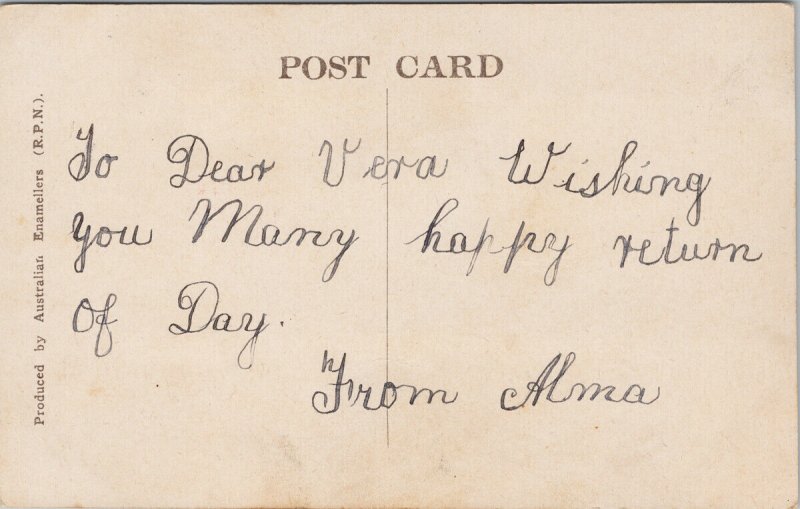 POST CARD
To Dear Vera Wishing
you Many happy return
Of Day.
From Alma
Produced by Australian Enamellers (R.P.N.).